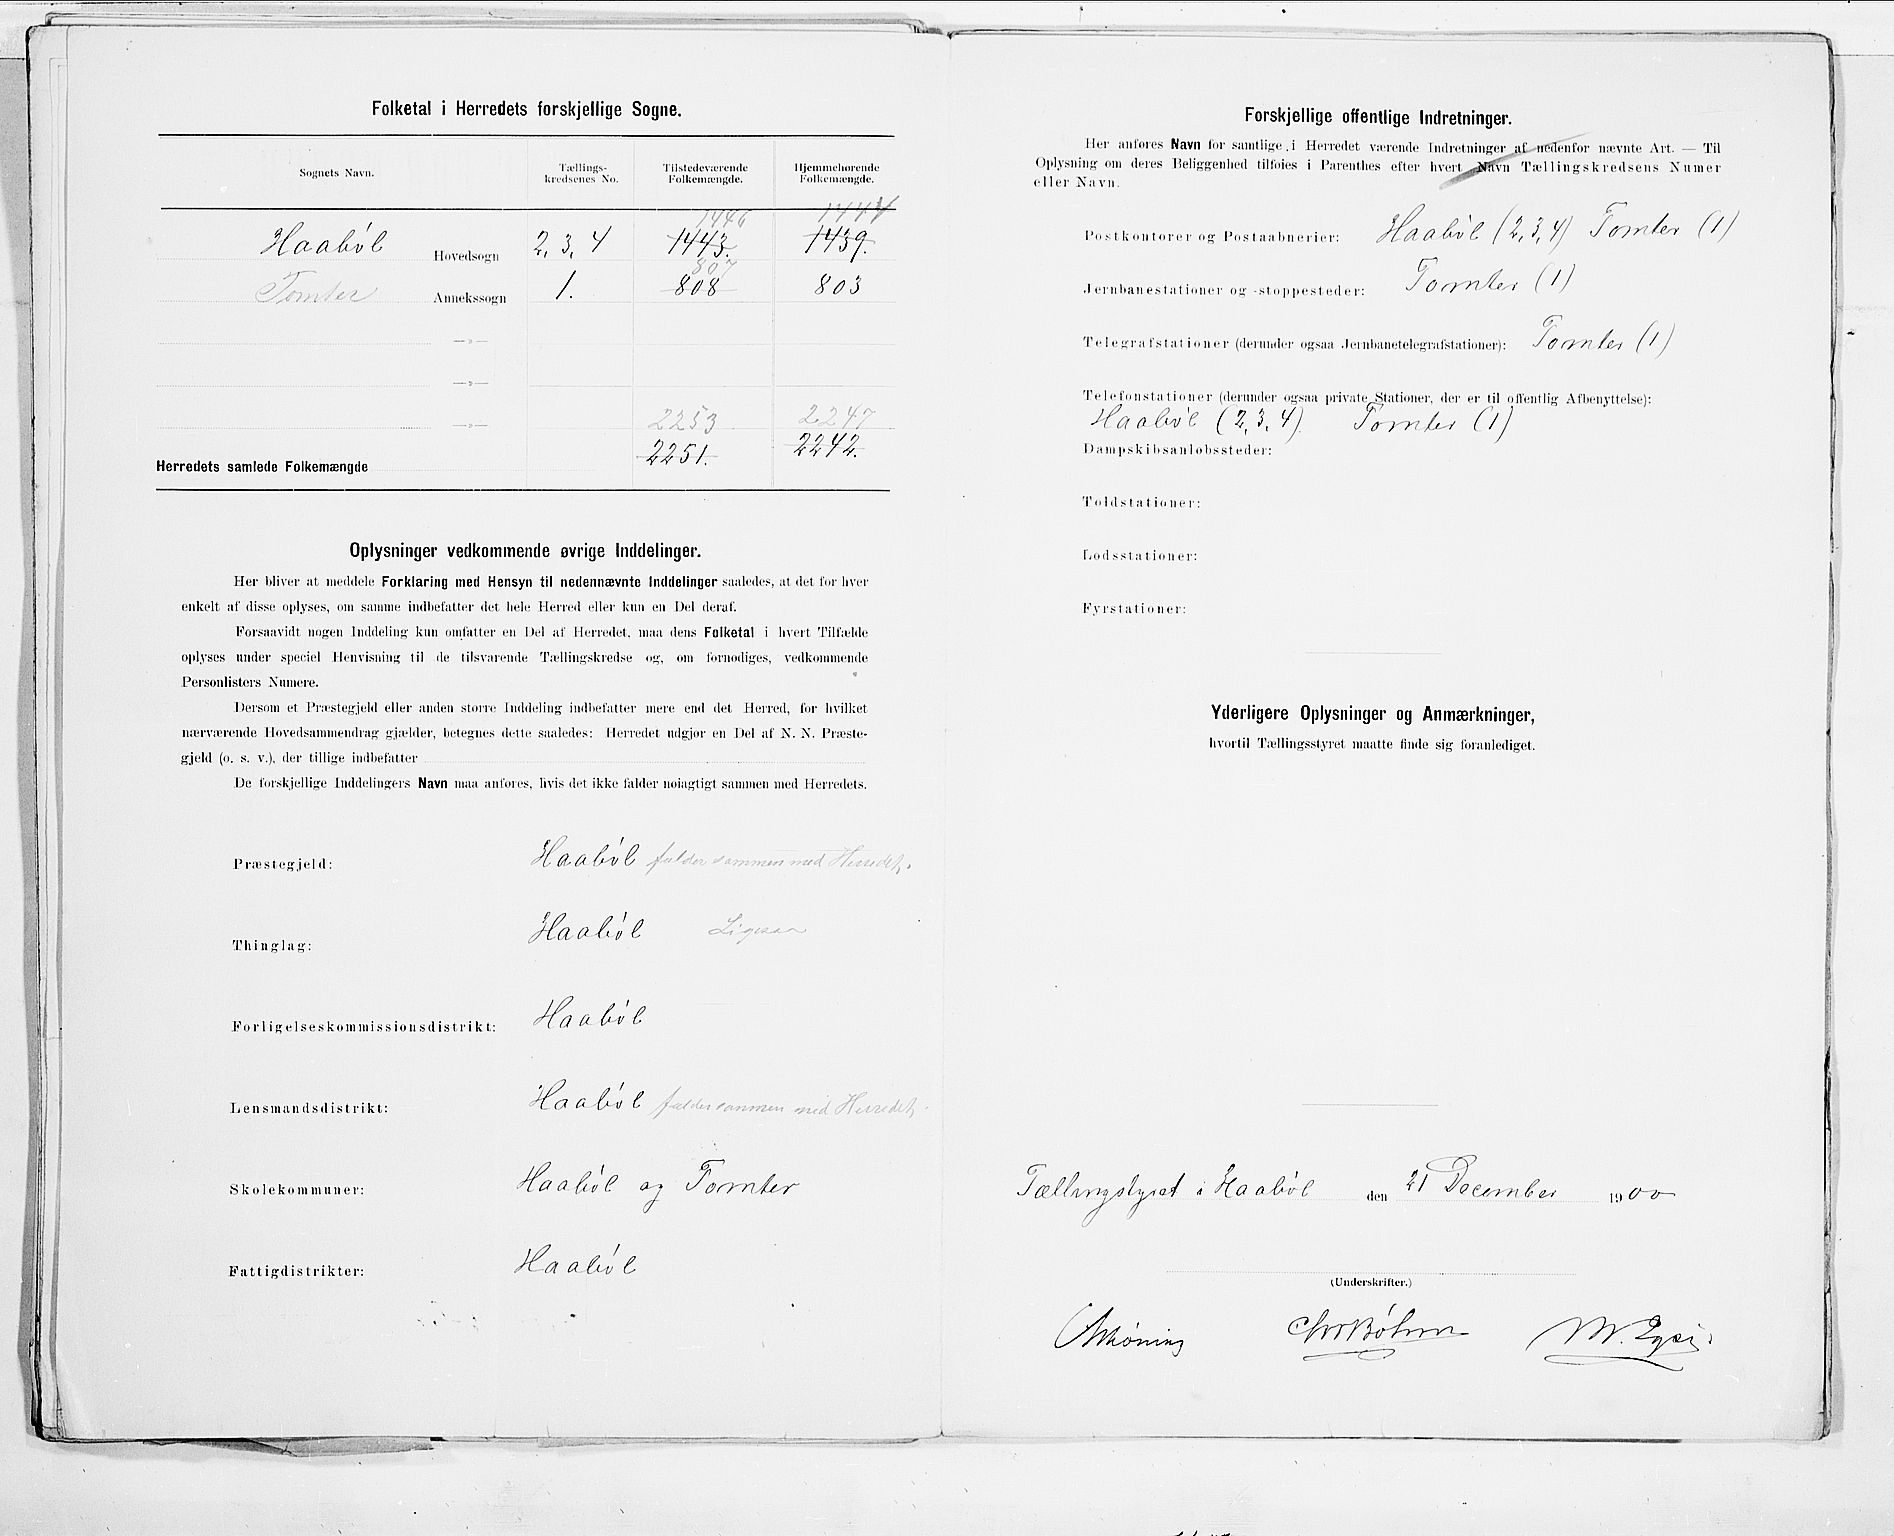 Folketal i Herredets forskjellige Sogne.
Sognets Navn. Tællings-kredsenes No. Tilstedeværende Folkemængde. Hjemmehørende Folkemængde.
1446 1444
Haabøl Hovedsogn 2, 3, 4 1443. 1439.
807
Tomter Annekssogn 1. 808 803
—»—
—»—
—»— 2253 2247
Herredets samlede Folkemængde 2251. 2242.
Oplysninger vedkommende øvrige Inddelinger.
Her bliver at meddele Forklaring med Hensyn til nedennævnte Inddelinger saaledes, at det for hver
enkelt af disse oplyses, om samme indbefatter det hele Herred eller kun en Del deraf.
Forsaavidt nogen Inddeling kun omfatter en Del af Herredet, maa dens Folketal i hvert Tilfælde
oplyses under speciel Henvisning til de tilsvarende Tællingskredse og, om fornødiges, vedkommende
Personlisters Numere.
Dersom et Præstegjeld eller anden større Inddeling indbefatter mere end det Herred, for hvilket
nærværende Hovedsammendrag gjælder, betegnes dette saaledes: Herredet udgjør en Del af N. N. Præste-
gjeld (o. s. v.), der tillige indbefatter
De forskjellige Inddelingers Navn maa anføres, hvis det ikke falder nøiagtigt sammen med Herredets.
Præstegjeld: Haabøl falder sammen med Herredet.
Thinglag: Haabøl Ligesaa
Forligelseskommissionsdistrikt: Haabøl
Lensmandsdistrikt: Haabøl falder sammen med Herredet.
Skolekommuner: Haabøl og Tomter
Fattigdistrikter: Haabøl
Forskjellige offentlige Indretninger.
Her anføres Navn for samtlige i Herredet værende Indretninger af nedenfor nævnte Art. — Til
Oplysning om deres Beliggenhed tilføies i Parenthes efter hvert Navn Tællingskredsens Numer
eller Navn.
Postkontorer og Postaabnerier: Haabøl (2, 3, 4) Tomter (1)
Jernbanestationer og -stoppesteder: Tomter (1)
Telegrafstationer (derunder ogsaa Jernbanetelegrafstationer): Tomter (1)
Telefonstationer (derunder ogsaa private Stationer, der er til offentlig Afbenyttelse):
Haabøl (2, 3, 4) Tomter (1)
Dampskibsanløbssteder:
Toldstationer:
Lodsstationer:
Fyrstationer:
Yderligere Oplysninger og Anmærkninger,
hvortil Tællingsstyret maatte finde sig foranlediget.
Tællingstyret i Haabøl den 21 December 1900
(Underskrifter.)